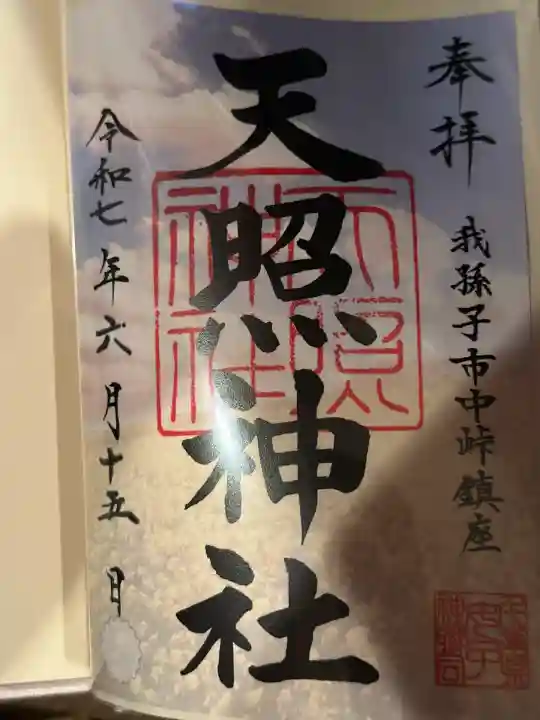 奉拝
我孫子市中峠鎮座
天照神社
天照
神社
令和七年六月十五日